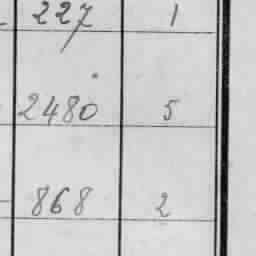 227 1
2480 5
868 2